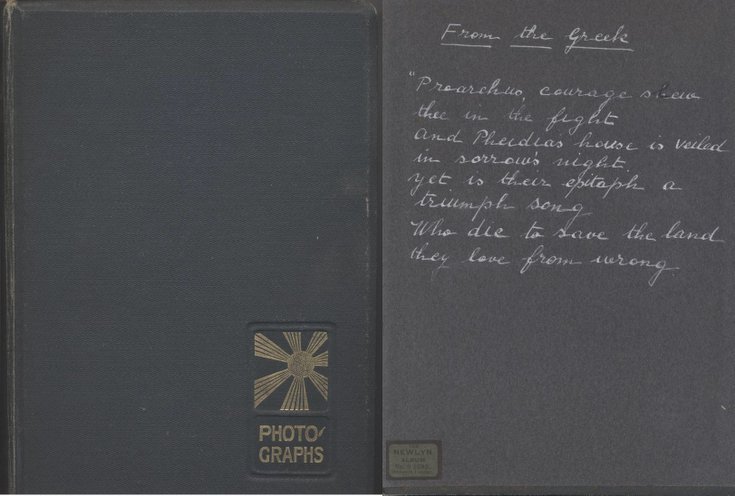 PHOTO-
GRAPHS
From the Greek
"Proarchus, courage slew
thee in the fight
and Pheidias house is veiled
in sorrow's night.
yet is their epitaph a
triumph song
Who die to save the land
they love from wrong
NEWLYN
ALBUM